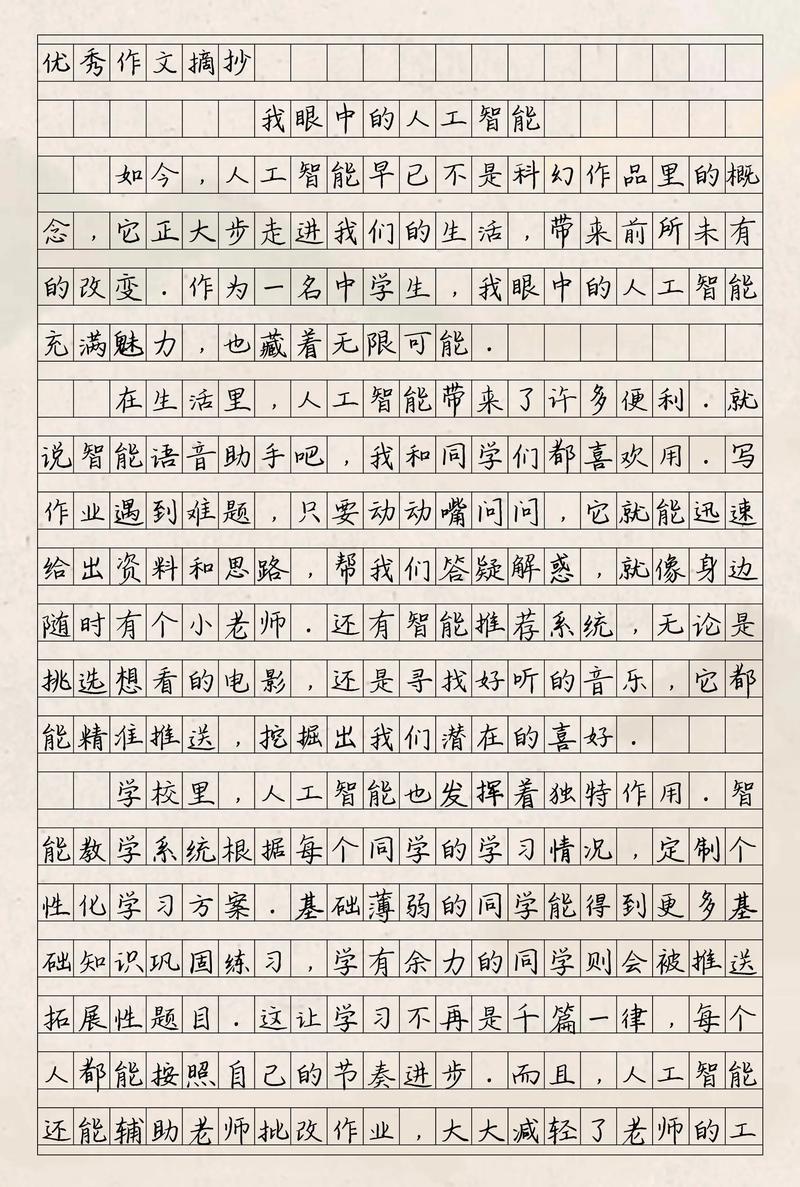 优秀作文摘抄
我眼中的人工智能
如今，人工智能早已不是科幻作品里的概
念，它正大步走进我们的生活，带来前所未有
的改变．作为一名中学生，我眼中的人工智能
充满魅力，也藏着无限可能．
在生活里，人工智能带来了许多便利．就
说智能语音助手吧，我和同学们都喜欢用．写
作业遇到难题，只要动动嘴问问，它就能迅速
给出资料和思路，帮我们答疑解惑，就像身边
随时有个小老师．还有智能推荐系统，无论是
挑选想看的电影，还是寻找好听的音乐，它都
能精准推送，挖掘出我们潜在的喜好．
学校里，人工智能也发挥着独特作用．智
能教学系统根据每个同学的学习情况，定制个
性化学习方案．基础薄弱的同学能得到更多基
础知识巩固练习，学有余力的同学则会被推送
拓展性题目．这让学习不再是千篇一律，每个
人都能按照自己的节奏进步．而且，人工智能
还能辅助老师批改作业，大大减轻了老师的工